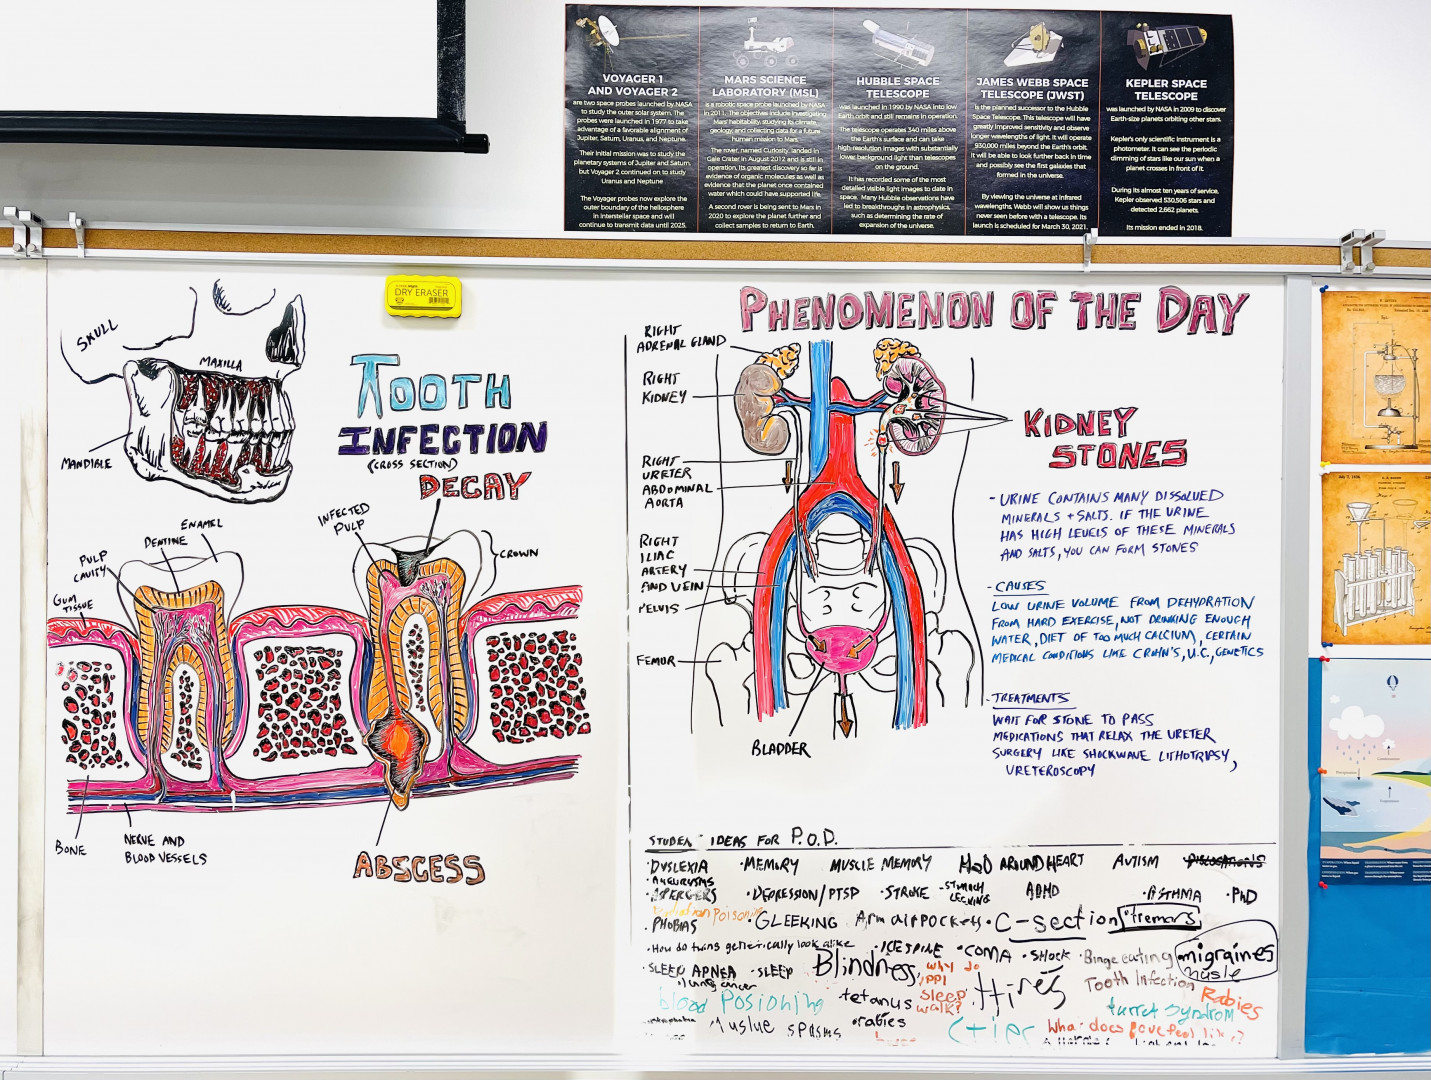 VOYAGER 1
AND VOYAGER 2
are two space probes launched by NASA
to study the outer solar system. The
probes were launched in 1977 to take
advantage of a favorable alignment of
Jupiter, Saturn, Uranus, and Neptune.
Their initial mission was to study the
planetary systems of Jupiter and Saturn,
but Voyager 2 continued on to study
Uranus and Neptune
The Voyager probes now explore the
outer boundary of the heliosphere
in interstellar space and will
continue to transmit data until 2025.
MARS SCIENCE
LABORATORY (MSL)
is a robotic space probe launched by NASA
in 2011. The objectives include investigating
Mars' habitability, studying its climate,
geology, and collecting data for a future
human mission to Mars.
The rover, named Curiosity, landed in
Gale Crater in August 2012 and is still in
operation. Its greatest discovery so far is
evidence of organic molecules as well as
evidence that the planet once contained
water which could have supported life.
A second rover is being sent to Mars in
2020 to explore the planet further and
collect samples to return to Earth.
HUBBLE SPACE
TELESCOPE
was launched in 1990 by NASA into low
Earth orbit and still remains in operation.
The telescope operates 340 miles above
the Earth's surface and can take
high-resolution images with substantially
lower background light than telescopes
on the ground.
It has recorded some of the most
detailed visible light images to date in
space. Many Hubble observations have
led to breakthroughs in astrophysics,
such as determining the rate of
expansion of the universe.
JAMES WEBB SPACE
TELESCOPE (JWST)
is the planned successor to the Hubble
Space Telescope. This telescope will have
greatly improved sensitivity and observe
longer wavelengths of light. It will operate
930,000 miles beyond the Earth's orbit.
It will be able to look further back in time
and possibly see the first galaxies that
formed in the universe.
By viewing the universe at infrared
wavelengths, Webb will show us things
never seen before with a telescope. Its
launch is scheduled for March 30, 2021.
KEPLER SPACE
TELESCOPE
was launched by NASA in 2009 to discover
Earth-size planets orbiting other stars.
Kepler's only scientific instrument is a
photometer. It can see the periodic
dimming of stars like our sun when a
planet crosses in front of it.
During its almost ten years of service,
Kepler observed 530,506 stars and
detected 2,662 planets.
Its mission ended in 2018.
DRY ERASER
SKULL
MAXILLA
MANDIBLE
TOOTH
INFECTION
(CROSS SECTION)
DECAY
INFECTED
PULP
ENAMEL
DENTINE
PULP
CAVITY
GUM
TISSUE
CROWN
BONE
NERVE AND
BLOOD VESSELS
ABSCESS
PHENOMENON OF THE DAY
RIGHT
ADRENAL GLAND
RIGHT
KIDNEY
RIGHT
URETER
ABDOMINAL
AORTA
RIGHT
ILIAC
ARTERY
AND VEIN
PELVIS
FEMUR
BLADDER
KIDNEY
STONES
- URINE CONTAINS MANY DISSOLVED
MINERALS + SALTS. IF THE URINE
HAS HIGH LEVELS OF THESE MINERALS
AND SALTS, YOU CAN FORM STONES
- CAUSES
LOW URINE VOLUME FROM DEHYDRATION
FROM HARD EXERCISE, NOT DRINKING ENOUGH
WATER, DIET OF TOO MUCH CALCIUM, CERTAIN
MEDICAL CONDITIONS LIKE CROHN'S, U.C., GENETICS
- TREATMENTS
WAIT FOR STONE TO PASS
MEDICATIONS THAT RELAX THE URETER
SURGERY LIKE SHOCKWAVE LITHOTRIPSY,
URETEROSCOPY
STUDENT IDEAS FOR P.O.D.
· DYSLEXIA · MEMORY MUSCLE MEMORY H2O AROUND HEART AUTISM
· ANEURYSMS
· ASPERGERS · DEPRESSION/PTSP · STROKE ADHD · ASTHMA · PhD
· PHOBIAS · GLEEKING Arm airpockets · C-section tremors
· How do twins genetically look alike · ICE SPINE · COMA · SHOCK · Binge eating migraines
· SLEEP APNEA · SLEEP Blindness why do ppl sleep walk? Tooth Infection
lung cancer
blood Posioning tetanus Rabies
spasms rabies